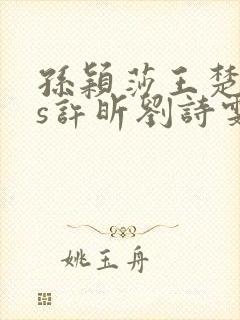 孫穎莎王楚
s許昕劉詩雯
姚玉舟